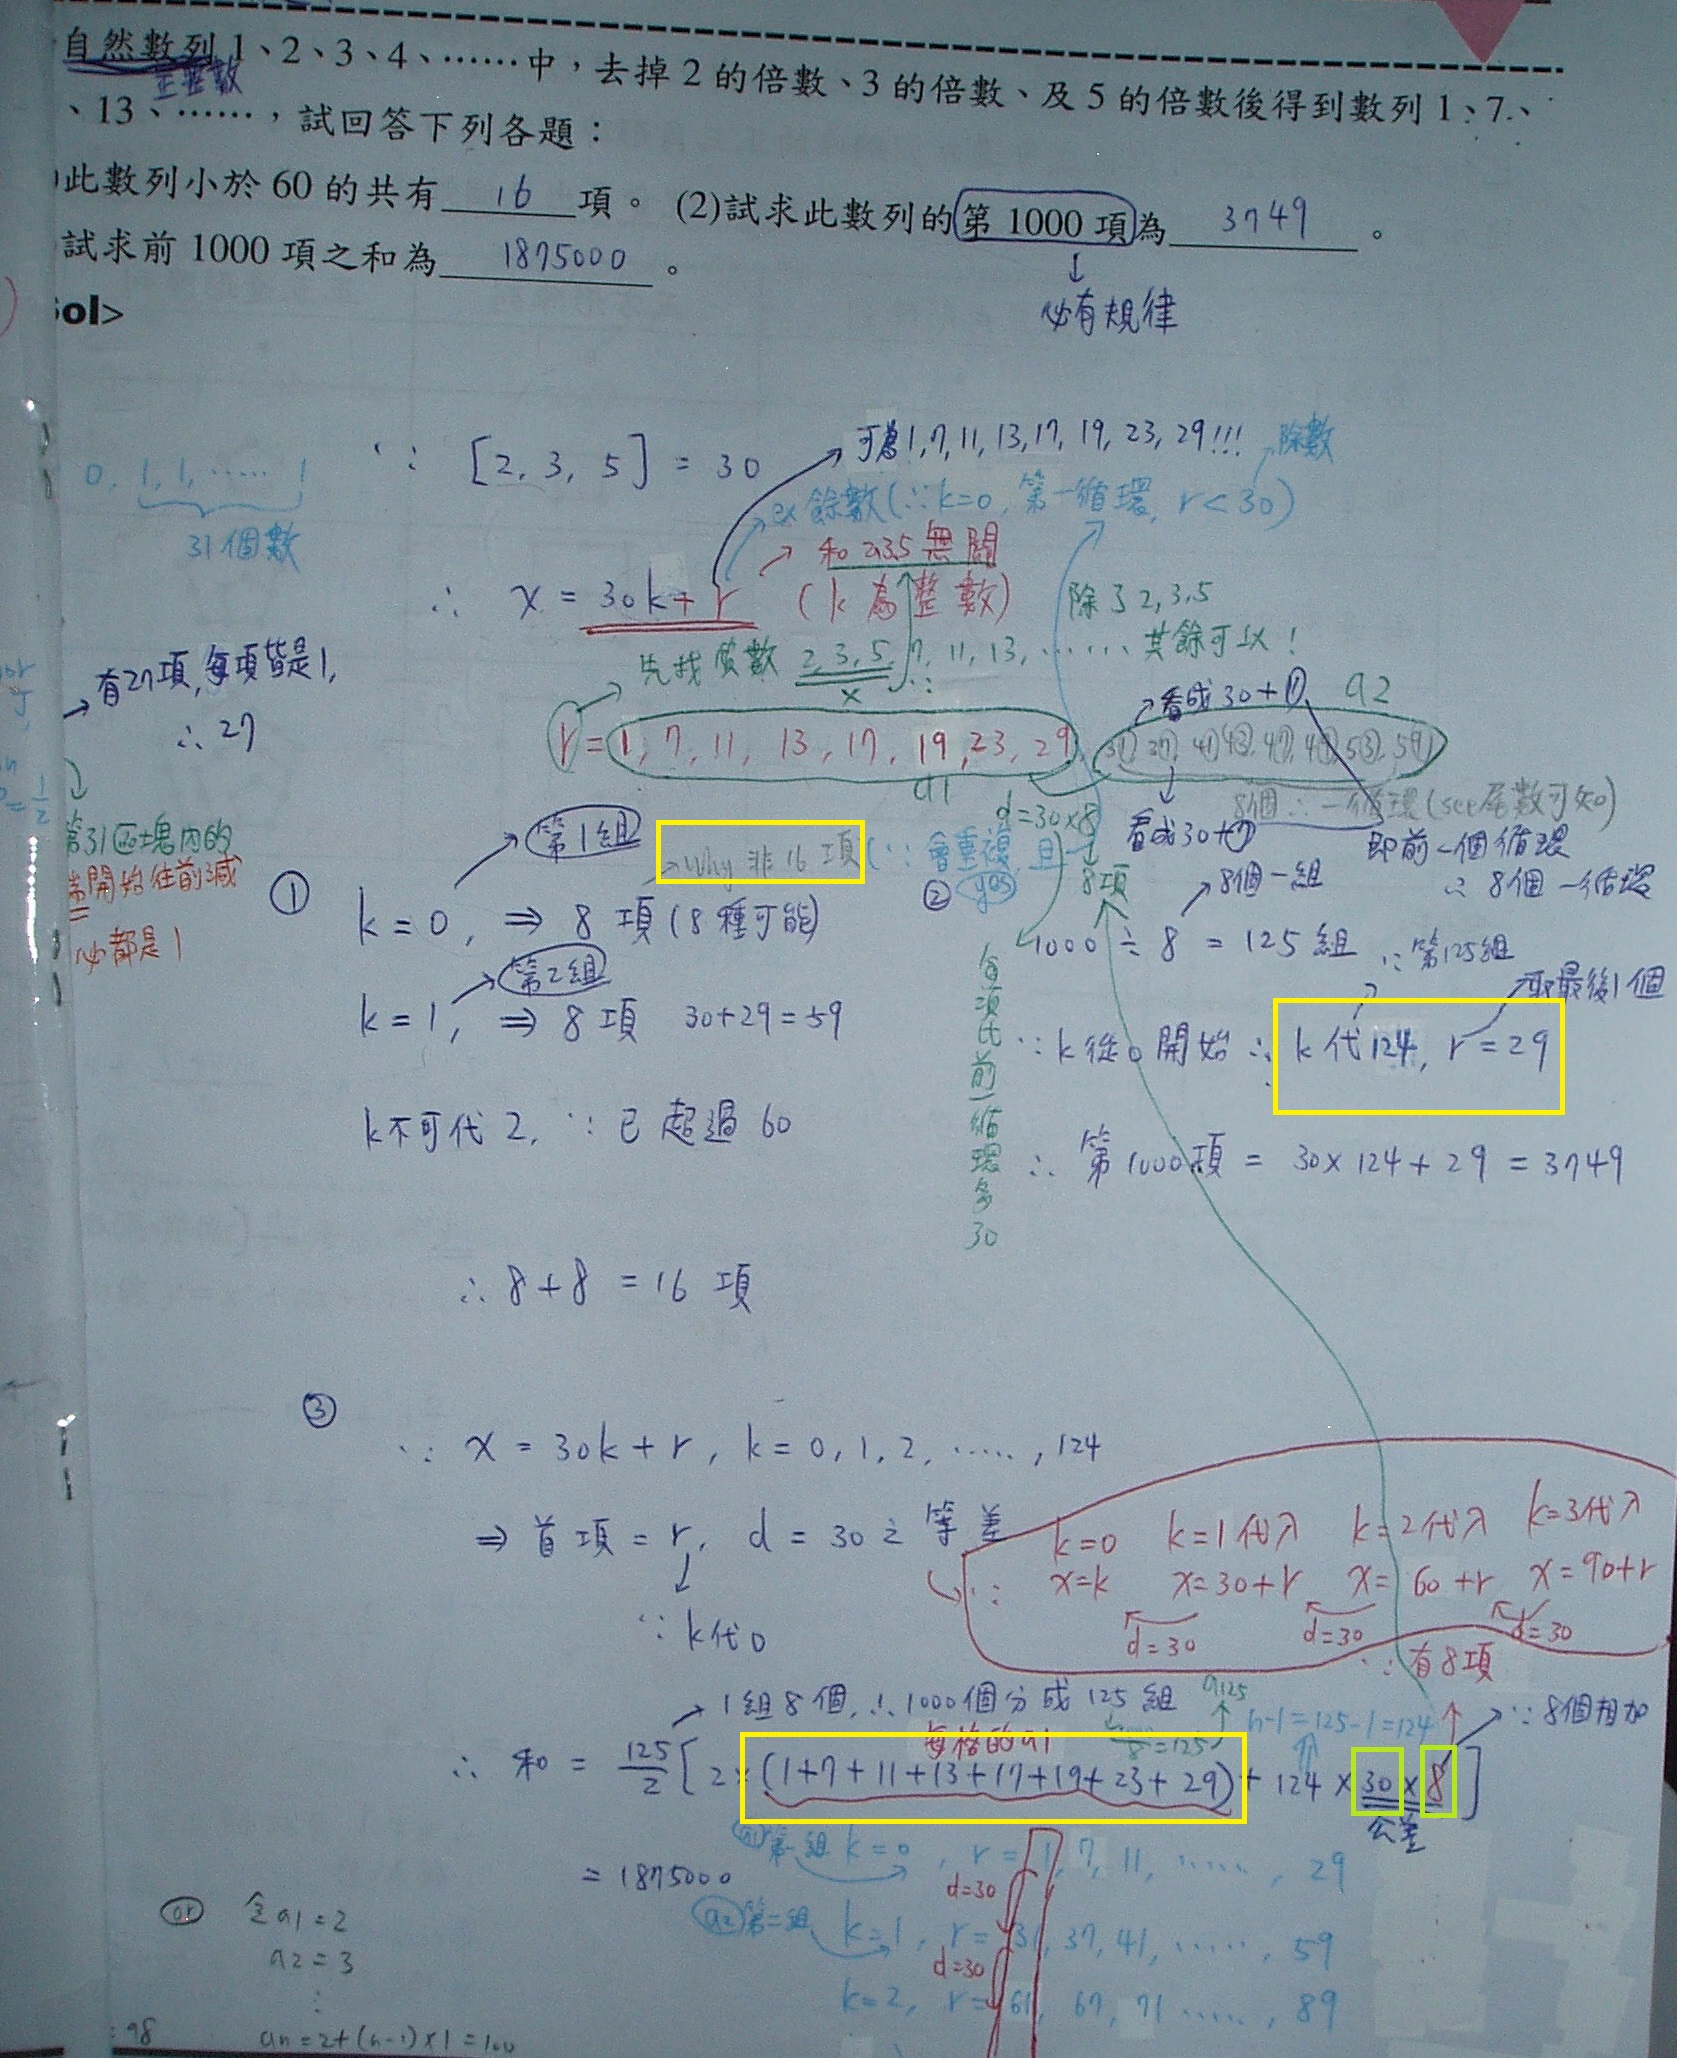 自然數列 1、2、3、4、……中，去掉 2 的倍數、3 的倍數、及 5 的倍數後得到數列 1、7、
正整數
、13、……，試回答下列各題：
)此數列小於 60 的共有 16 項。 (2)試求此數列的第 1000 項為 3749 。
試求前 1000 項之和為 1875000 。
必有規律
ol>
可為1,7,11,13,17,19,23,29!!! 除數
0, 1, 1, …… 1
31個數
∵ [2, 3, 5] = 30
餘數(∵k=0, 第一循環, r<30)
和2,3,5無關
∴ x = 30k+r (k為整數)
除了2,3,5
先找質數 2,3,5,7,11,13,…… 其餘可以!
x
有27項,每項皆是1,
∴ 27
看成30+1 a2
r = 1, 7, 11, 13, 17, 19, 23, 29, 31, 37, 41, 43, 47, 49, 53, 59
a1
d=30×8
8個∴一循環(see尾數可知)
看成30+7
即前一個循環
∴ 8個一循環
第31區塊內的
開始往前減
必都是1
第1組
→Why 非16項 (∵會重複,且
yes
8項
8個一組
① k=0, ⇒ 8項(8種可能)
② 1000÷8 = 125組 ∴第125組
第2組
k=1, ⇒ 8項 30+29=59
取最後1個
∵k從0開始∴ k代124, r=29
每項比前一循環多30
k不可代2, ∵已超過60
∴ 第1000項 = 30×124+29 = 3749
∴ 8+8 = 16 項
③ ∵ x = 30k+r, k=0,1,2,……,124
⇒ 首項=r, d=30之等差
∵ k代0
∵ k=0 k=1代入 k=2代入 k=3代入
x=k x=30+r x=60+r x=90+r
d=30 d=30 d=30
∵有8項
1組8個,∴1000個分成125組
a125
n-1=125-1=124
∵8個相加
每格的a1
8=125
∴ 和 = 125/2 [2×(1+7+11+13+17+19+23+29)+124×30×8]
公差
= 1875000
a1第一組 k=0, r=1, 7, 11, ……, 29
d=30
a2第二組 k=1, r=31, 37, 41, ……, 59
d=30
k=2, r=61, 67, 71 ……, 89
or 令a1=2
a2=3
⋮
an=2+(n-1)×1=100
98